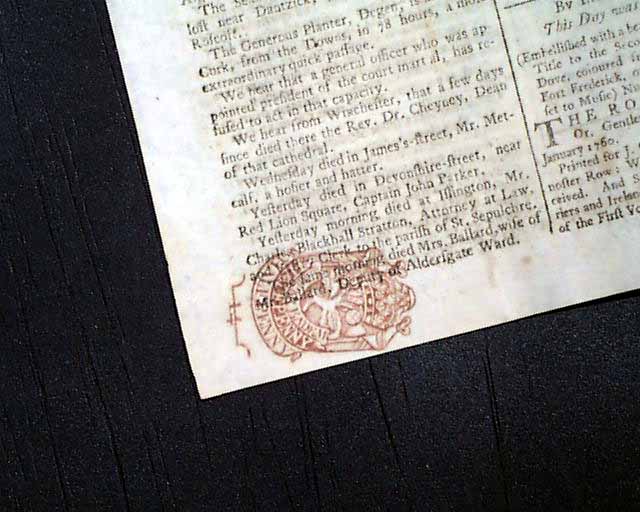 The Se
lost near Dantzick,
Rolesse.
The Generous Planter, Degen, is
Cork, from the Downs, in 78 hours, a most
extraordinary quick passage.
We hear that a general officer who was ap-
pointed president of the court martial, has re-
fused to act in that capacity.
We hear from Winchester, that a few days
since died there the Rev. Dr. Cheyney, Dean
of that cathedral.
Wednesday died in James's-street, Mr. Met-
calf, a hosier and hatter.
Yesterday died in Devonshire-street, near
Red Lion Square, Captain John Parker.
Yesterday morning died at Islington, Mr.
Charles Blackhall Stratton, Attorney at Law,
Clerk to the Parish of St. Sepulchre.
same morning died Mrs. Ballard, wife of
Mr. Ballard, Deputy of Aldersgate Ward.
This Day was
(Embellished with a
Title to the Sec
Dove, coloured
Fort Frederick,
set to Music) N
THE RO
Or, Gentle
January 1760.
Printed for J.
noster Row;
ceived. And S
riers and Irelan
of the First Vo